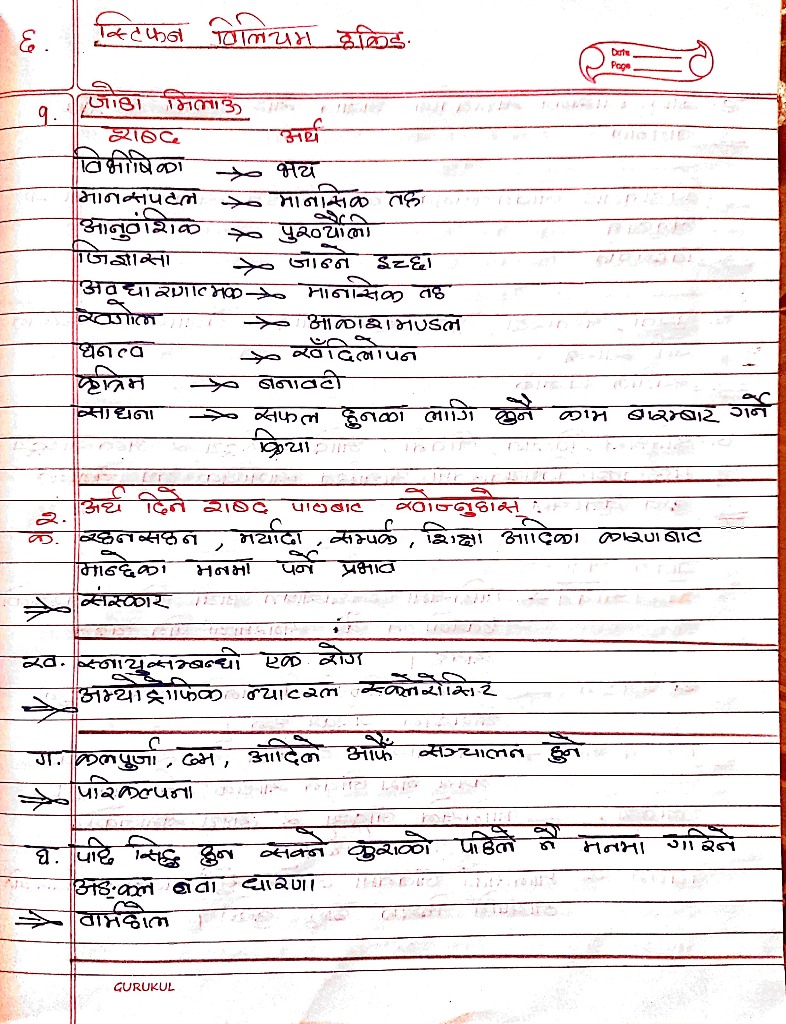 ६. स्टिफन विलियम हकिङ.
Date
Page
१. जोडा मिलाऊ
शब्द अर्थ
विभीषिका → भय
मानसपटल → मानसिक तह
आनुवंशिक → पुर्ख्यौली
जिज्ञासा → जान्ने इच्छा
अवधारणात्मक → मानसिक तह
खगोल → आकाशमण्डल
घनत्व → खँदिलोपन
कृत्रिम → बनावटी
साधना → सफल हुनका लागि कुनै काम बारम्बार गर्ने
क्रिया
२. अर्थ दिने शब्द पाठबाट खोज्नुहोस् :
क. रहनसहन, मर्यादा, सम्पर्क, शिक्षा आदिका कारणबाट
मान्छेका मनमा पर्ने प्रभाव
⇒ संस्कार
ख. स्नायुसम्बन्धी एक रोग
⇒ अम्योट्रोफिक ल्याटरल स्क्लेरोसिर
ग. कलपुर्जा, ढम, आदिले आफैँ सञ्चालन हुने
⇒ परिकल्पना
घ. पछि सिद्ध हुन सक्ने कुराको पहिले नै मनमा गरिने
अड्कल बवा धारणा
⇒ वार्महोल
GURUKUL